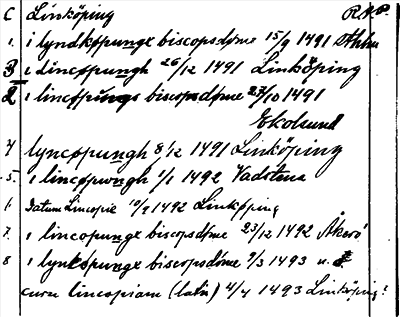 C Linköping R.A.P.
1. i lyndkøpunge biscopsdøme 15/9 1491 Sthlm
3 i Lincopungh 26/12 1491 Linköping
2 i lincopungs biscopsdøme 27/10 1491
Ekolsund
4 lyncopungh 8/12 1491 Linköping
5. i lincopungh 1/1 1492 Vadstena
6 Datum Lincopie 10/2 1492 Linköping
7. i lincopunge biscopsdøme 23/12 1492 Åkerö
8 i lynkopunge biscopsdøme 9/3 1493 u.
cum lincopiam (latin) 4/4 1493 Linköping?